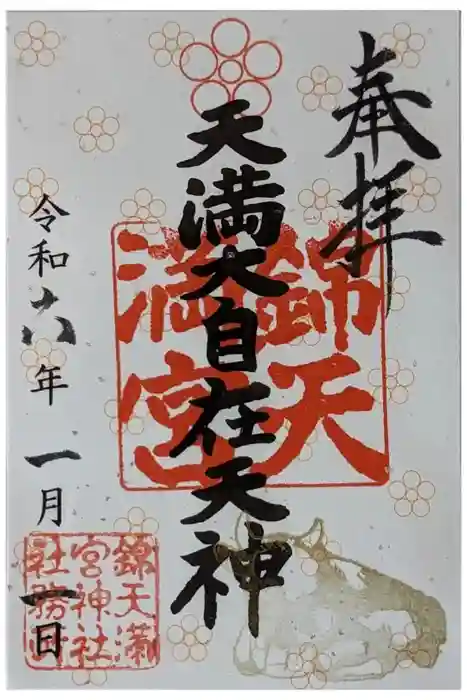 奉拝
天満大自在天神
錦天
満宮
令和六年 一月 一日
錦天満
宮神社
社務所